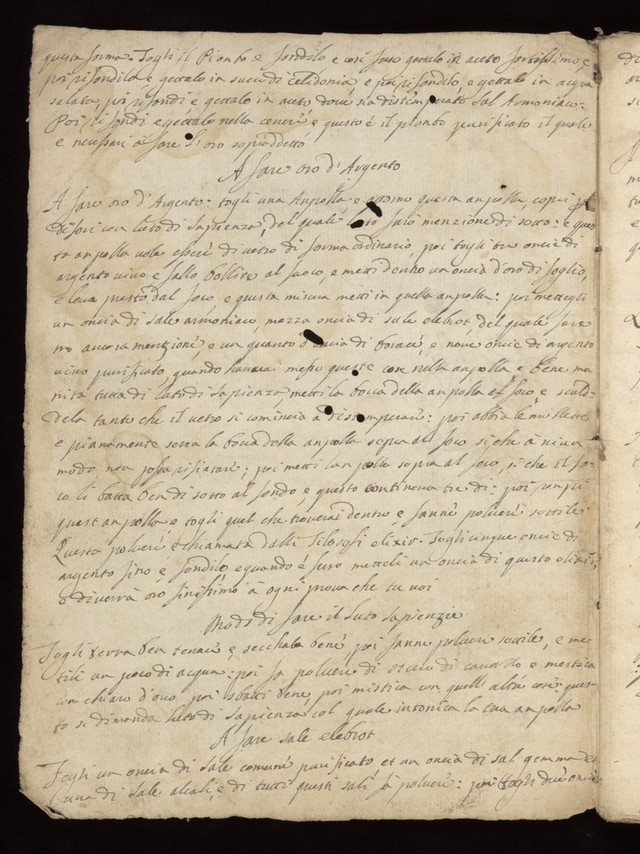 questa forma. Togli il Pionto e fondilo e così fuso gettalo in aceto fortissimo, e
poi rifondilo e gettalo in suco di celidonia, e poi rifondilo, e gettalo in acqua
salata, poi rifondi e gettalo in aceto dove sia distemperato Sal Armoniaco:
Poi rifondi e gettalo nella cenere e questo è il piombo purificato il quale
e necessario à fare l'oro sopraddetto
A fare oro d'Argento
A fare oro d'Argento: togli una Anpolla e attorno questa anpolla, copri
di fori con luto di Sapienza, del quale farò menzione di sotto: e ques
ta anpolla vole essere di vetro di forma ordinario, poi togli tre oncie di
argento vivo e fallo bollire al fuoco, e metti dentro un oncia d'oro di foglio,
e leva presto dal foco, e questa misura metti in quella anpolla: poi mettegli
un oncia di sale armoniaco, mezza oncia di sale elebrot, del quale fare
mo ancora menzione, e un quarto d'oncia di borace, e nove oncie di argento
vivo purificato, quando haverai messo queste cose nella anpolla e bene mu
nita tutta di luto di sapienza metti la bocca della anpolla al foco, e scal
dela tanto che il vetro si comincia à distemperare: poi abbi le mollette
e pianamente serra la bocca della anpolla sopra al foco si che à niun
modo non possa rifiatare; poi metti l'anpolla sopra al foco, si che il fo
co li batta ben di sotto al fondo, e questo continova tre dì: poi
quest anpolla e togli quel che troverai dentro e fanne polvere sottile
Questa polvere è chiamata dalli filosofi elixir. Togli cinque oncie di
argento fino e fondilo e quando è fuso metteli un oncia di questo elixir,
e diverrà oro finissimo à ogni prova che tu voi
Modo di fare il Luto Sapienzie
Togli terra ben tenace e seccala bene poi fanne polvere sottile, e me
tili un poco di acqua: poi fa polvere di sterco di cavallo e mestica
con chiaro d'ovo poi sbatti bene, poi mistica con quelle altre cose ques
to si dimanda luto di sapienza col quale intonica la tua anpolla
A fare sale elebrot
Togli un oncia di sale comune purificato et un oncia di sal gemma et
una di sale alcali, e di tutti questi sali fà polvere: poi togli due oncie